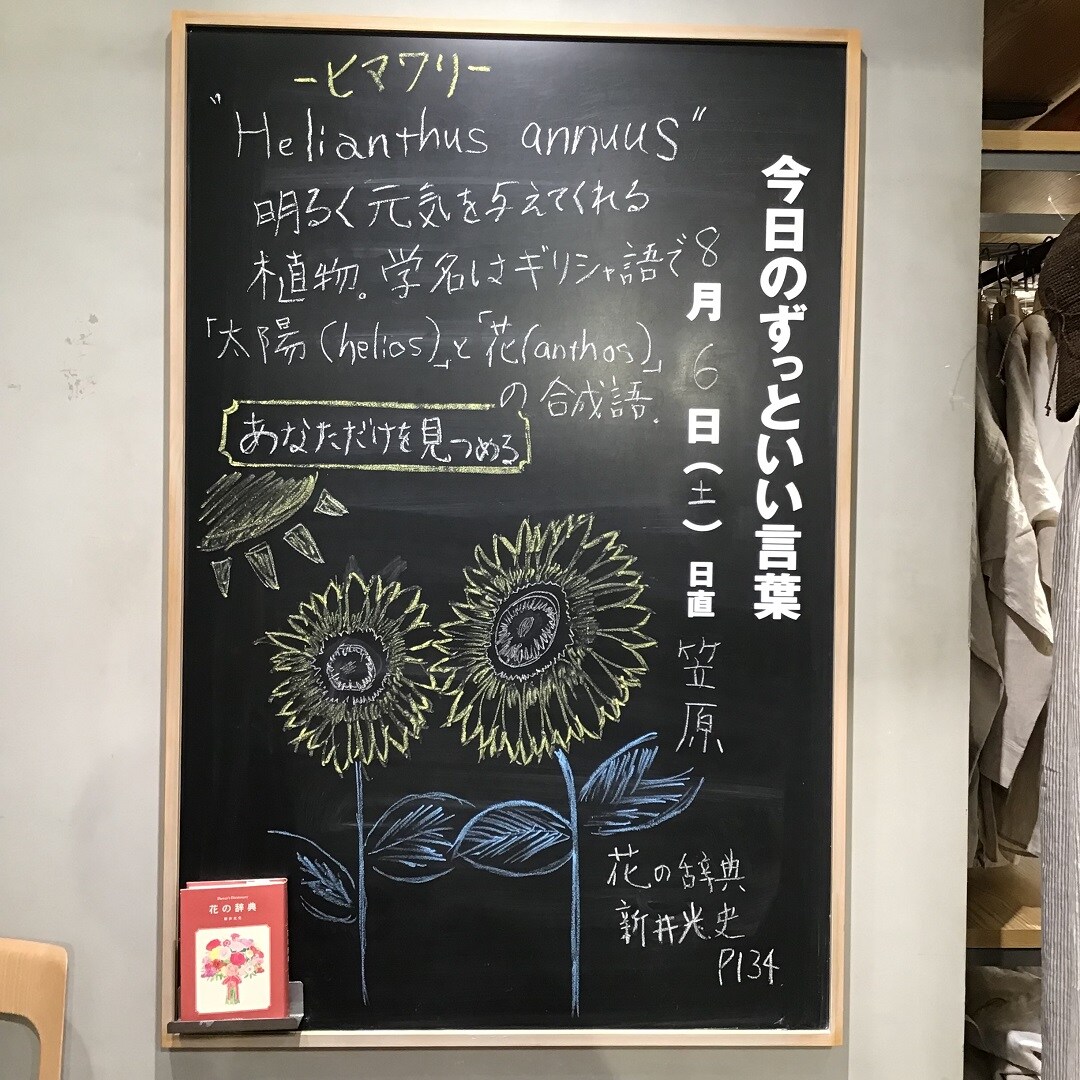 今日のずっといい言葉
8月6日(土) 日直 笠原
-ヒマワリ-
"Helianthus annuus"
明るく元気を与えてくれる
植物。学名はギリシャ語で
「太陽(helios)」と「花(anthos)」
の合成語。
あなただけを見つめる
花の辞典
新井光史
P134
花の辞典
新井光史